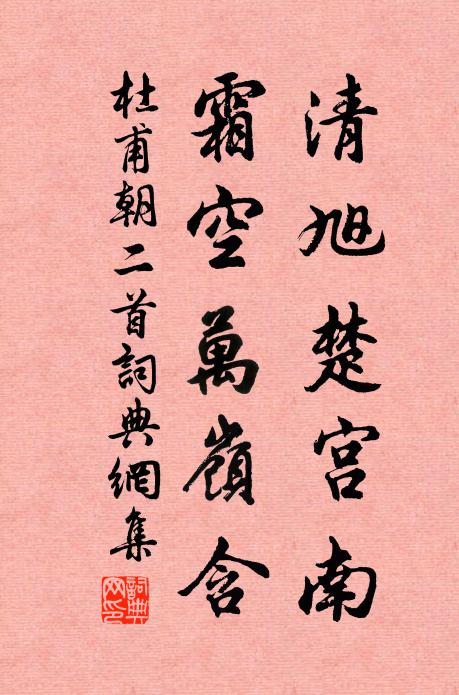 清旭楚宫南
霜空萬嶺含
杜甫朝二首詞典網集
詞典
网印